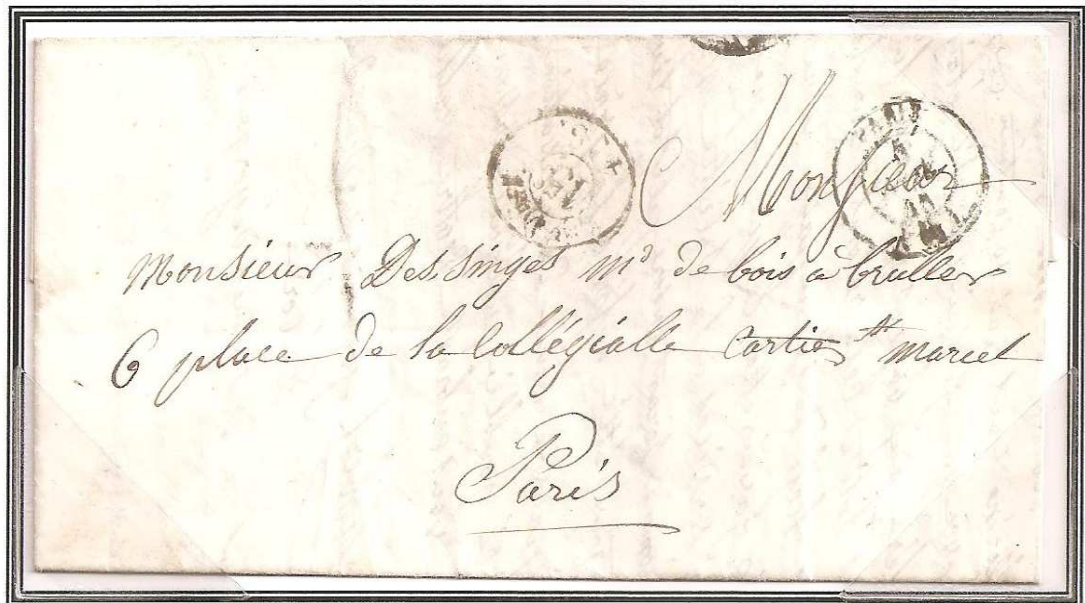 Monsieur
Monsieur Dessinges md de bois à bruller
6 place de la Collégialle Cartier st marcel
Paris
PARIS
5
41